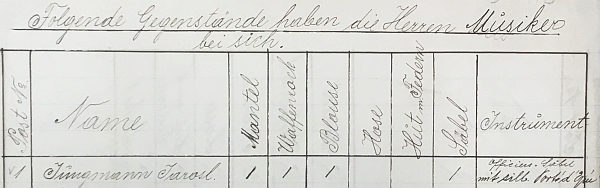 Folgende Gegenstände haben die Herren Musiker
bei sich.
Post No
Name
Mantel
Waffenrock
Blouse
Hose
Hut m Federn
Säbel
Instrument
1 Jungmann Jarosl. 1 1 1 1 Officiers-Säbel
mit silb. Port d'Epée